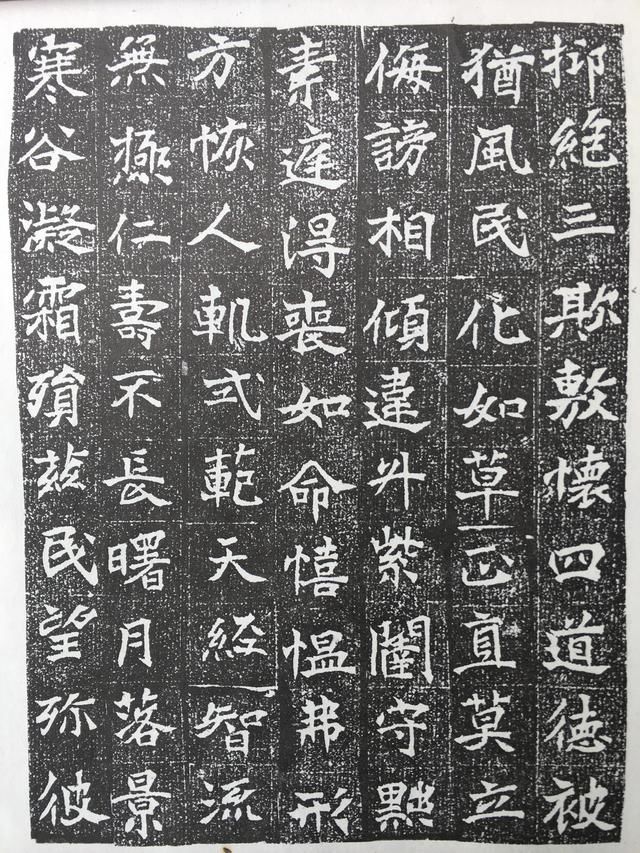 抑絶三欺敷懷四道德被
猶風民化如草正直莫立
侮謗相傾違升紫闥守黜
素庭得喪如命憘愠弗形
方恢人軌式範天經智流
無極仁壽不長曙月落景
寒谷凝霜殞兹民望殄彼